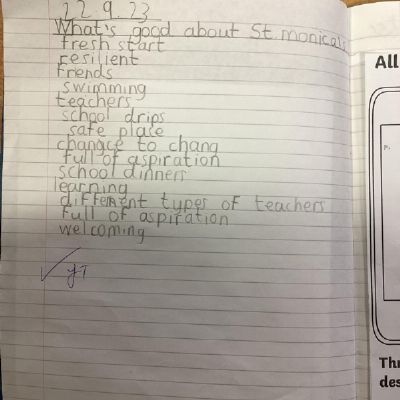 22.9.23
What's good about St. monica's
fresh start
resilient
friends
swimming
teachers
school drips
safe place
change to chang
full of aspiration
school dinners
learning
different types of teachers
full of aspiration
welcoming
All
Thr
des